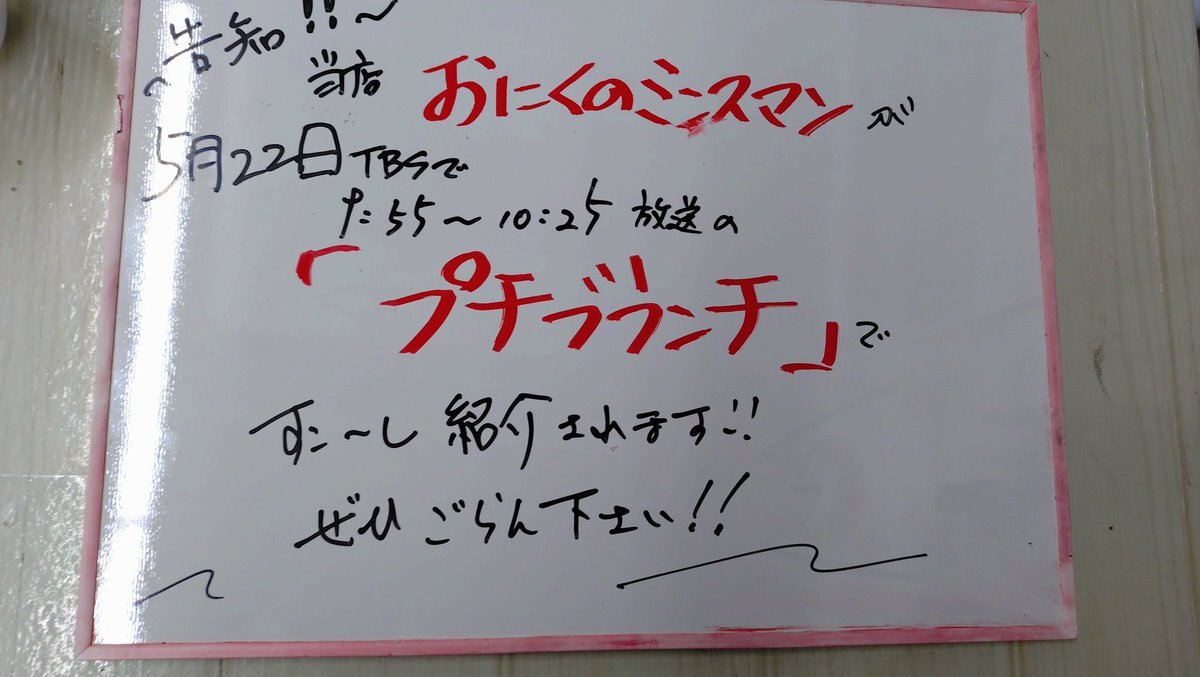 ~告知!!~
当店 おにくのミンスマンが
5月22日TBSで
9:55~10:25 放送の
「プチブランチ」で
すこ~し 紹介されます!!
ぜひ ごらん下さい!!